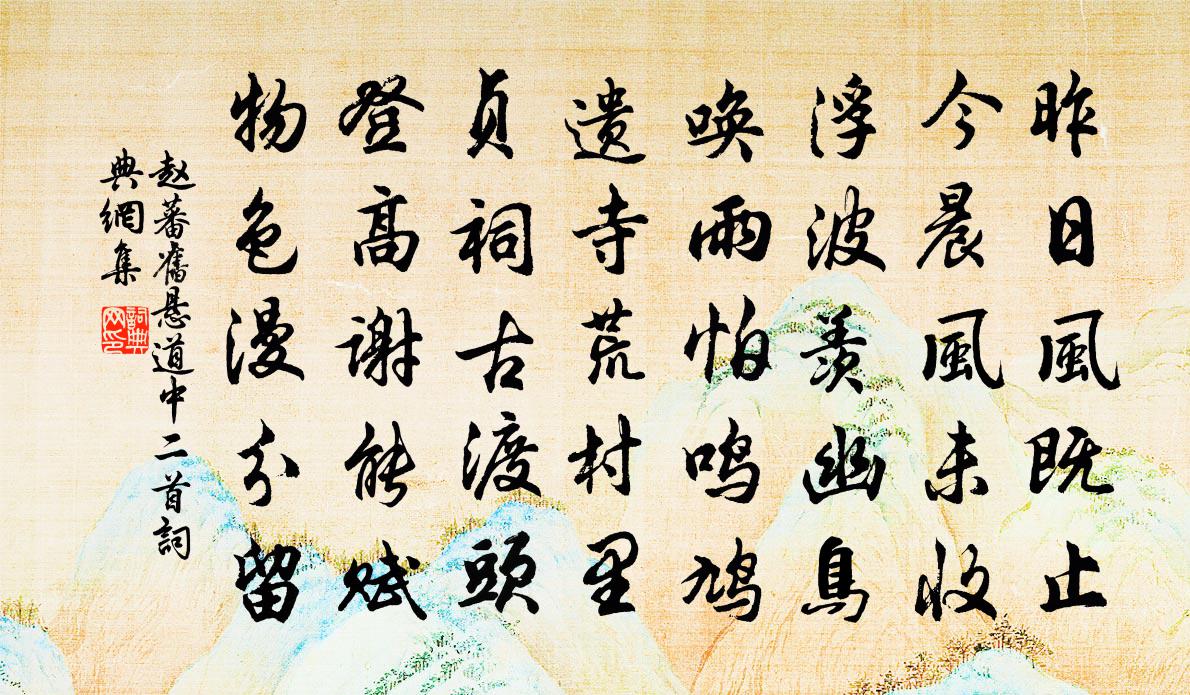 昨日風既止
今晨風未收
浮波羨幽鳥
唤雨怕鸣鸠
遗寺荒村里
贞祠古渡頭
登高谢能赋
物色漫分留
赵蕃舊悬道中二首詞
典網集
詞典
网印